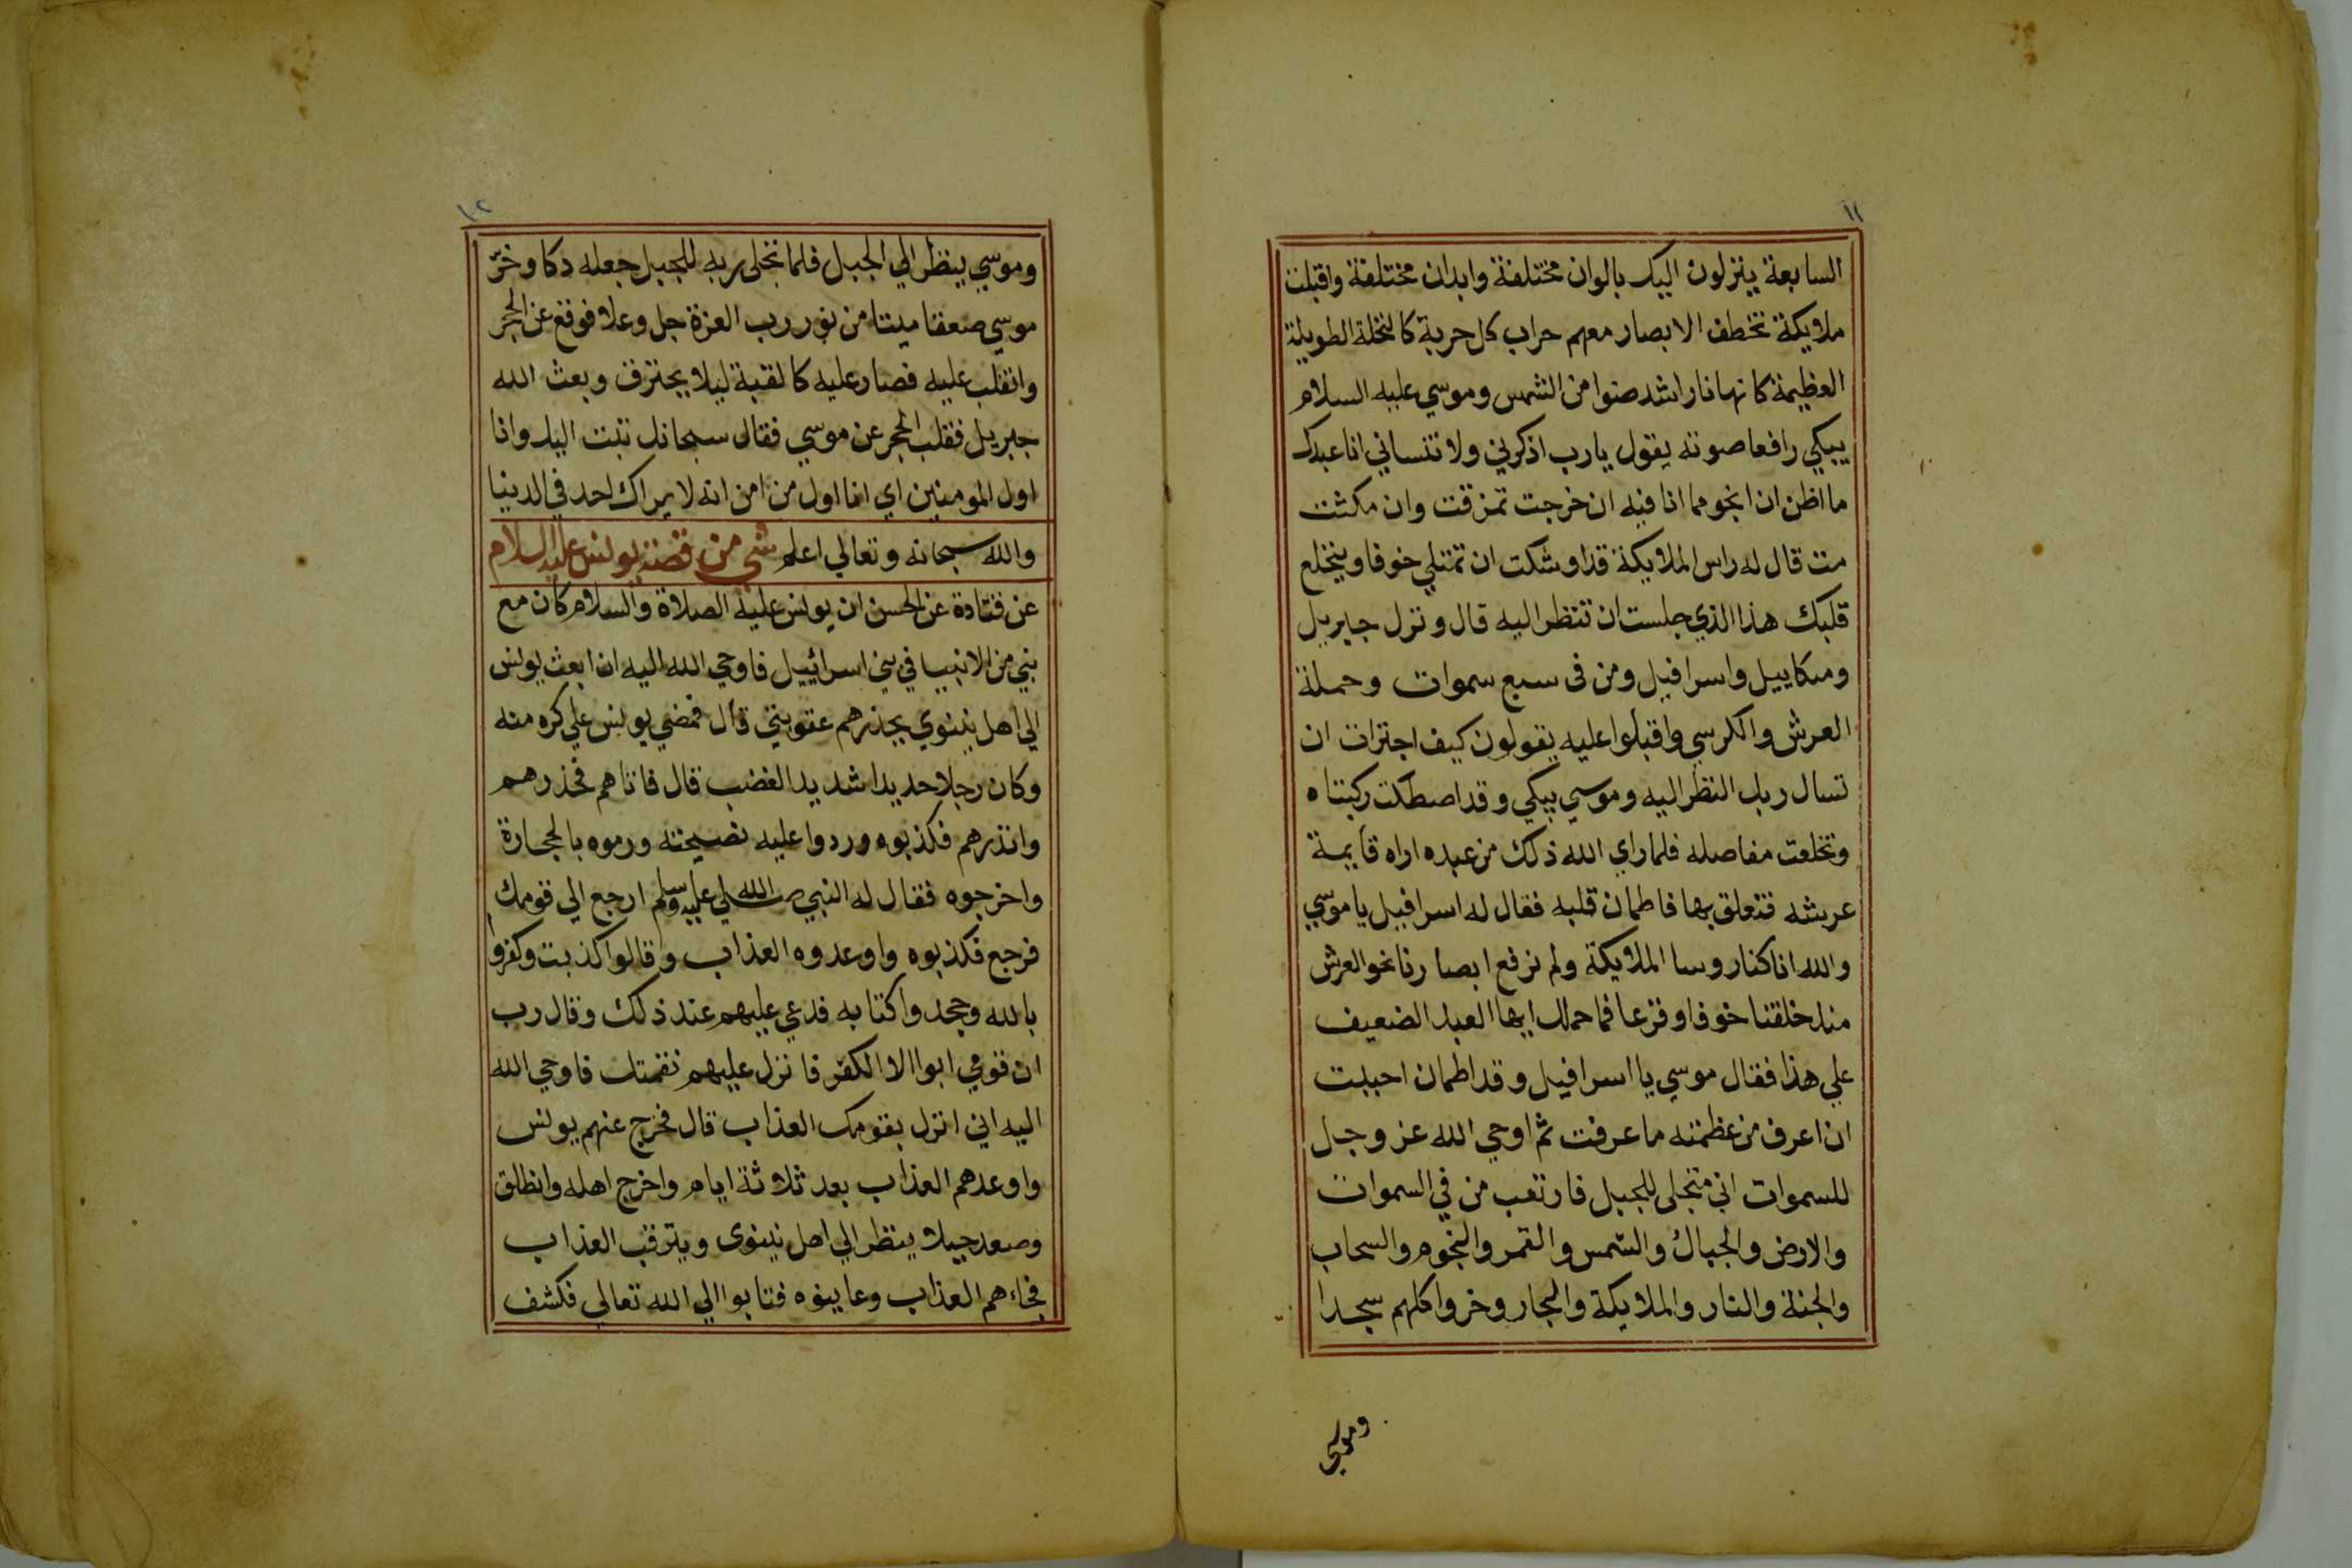 ١١
السابعة ينزلون اليك بالوان مختلفة وابدان مختلفة واقبلت
ملايكة تخطف الابصار معهم حراب كل حربة كالنخلة الطويلة
العظيمة كانها نار اشد ضوا من الشمس وموسي عليه السلام
يبكي رافعا صوته يقول يارب اذكرني ولا تنساني انا عبدك
ما اظن ان انجو مما انا فيه ان خرجت تمزقت وان مكثت
مت قال له راس الملايكة قد اوشكت ان تمتلي خوفا وينخلع
قلبك هذا الذي جلست ان تنظر اليه قال ونزل جبريل
وميكاييل واسرافيل ومن فى سبع سموات وحملة
العرش والكرسي واقبلوا عليه يقولون كيف اجترات ان
تسال ربك النظر اليه وموسي يبكي وقد اصطكت ركبتاه
وتخلعت مفاصله فلما راي الله ذلك من عبده اراه قايمة
عرشه فتعلق بها فاطمان قلبه فقال له اسرافيل يا موسي
والله انا كنا روسا الملايكة ولم نرفع ابصارنا نحو العرش
منذ خلقنا خوفا وفزعا فما حملك ايها العبد الضعيف
علي هذا فقال موسي يا اسرافيل وقد اطمان احببت
ان اعرف من عظمته ما عرفت ثم اوحي الله عز وجل
للسموات اني متجلى للجبل فارتعب من في السموات
والارض والجبال والشمس والقمر والنجوم والسحاب
والجنة والنار والملايكة والبحار وخروا كلهم سجدا
وموسي
١٢
وموسي ينظر الي الجبل فلما تجلى ربه للجبل جعله دكا وخرّ
موسي صعقا ميتا من نور رب العزة جل وعلا فوقع عن الحجر
وانقلب عليه فصار عليه كالقبة ليلا يحترق وبعث الله
جبريل فقلب الحجر عن موسي فقال سبحانك تبت اليك وانا
اول المومنين اي انا اول من امن انه لا يراك احد في الدنيا
والله سبحانه وتعالي اعلم شي من قصة يونس عليه السلام
عن قتادة عن الحسن ان يونس عليه الصلاة والسلام كان مع
نبي من الانبيا في بني اسرائييل فاوحي الله اليه ان ابعث يونس
الي اهل نينوي يحذرهم عقوبتي قال فمضي يونس علي كره منه
وكان رجلا حديدا شديد الغضب قال فاتاهم فحذرهم
وانذرهم فكذبوه وردوا عليه نصيحته ورموه بالحجارة
واخرجوه فقال له النبي صلي الله عليه وسلم ارجع الي قومك
فرجع فكذبوه واوعدوه العذاب وقالوا كذبت وكفروا
بالله وجحدوا كتابه فدعي عليهم عند ذلك وقال رب
ان قومي ابوا الا الكفر فانزل عليهم نقمتك فاوحي الله
اليه اني انزل بقومك العذاب قال فخرج عنهم يونس
واوعدهم العذاب بعد ثلاثة ايام واخرج اهله وانطلق
وصعد جبلا ينظر الي اهل نينوى ويترقب العذاب
فجاءهم العذاب وعاينوه فتابوا الي الله تعالي فكشف